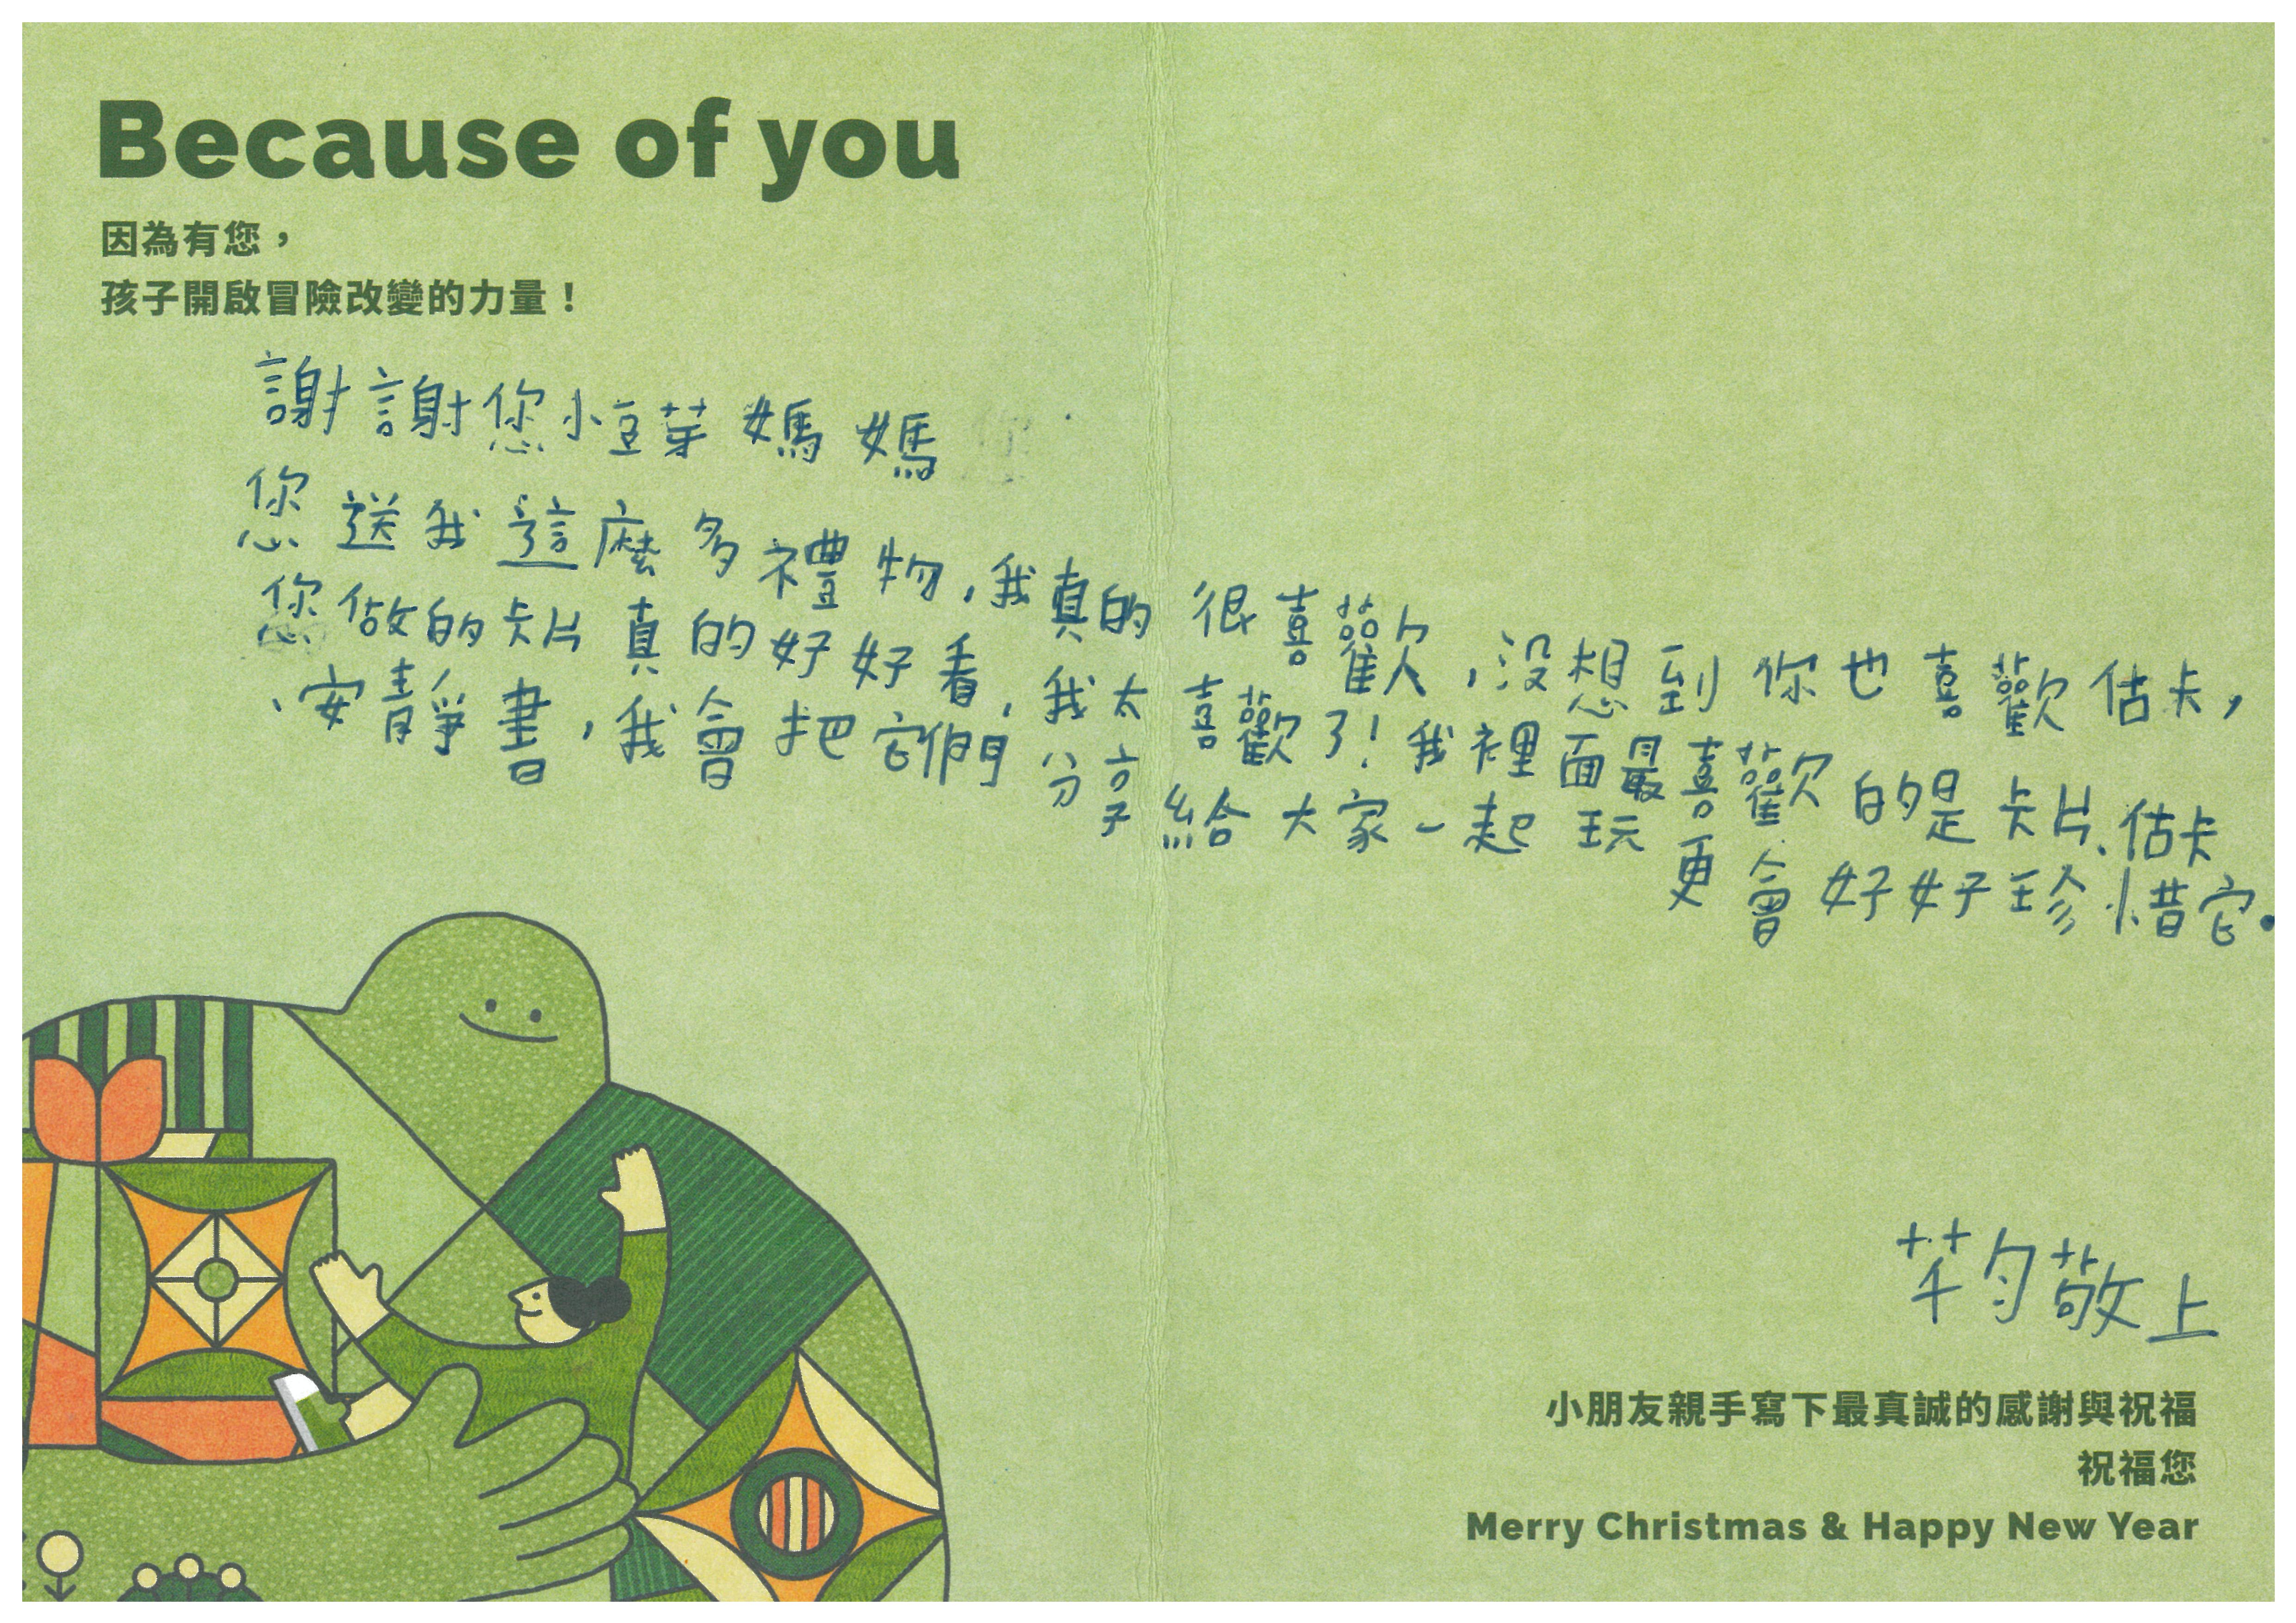 Because of you
因為有您，
孩子開啟冒險改變的力量！
謝謝您小豆芽媽媽
您送我這麼多禮物，我真的很喜歡，沒想到你也喜歡估卡，
您做的卡片真的好好看，我太喜歡了！我裡面最喜歡的是卡片、估卡
、安靜書，我會把它們分享給大家一起玩更會好好珍惜它.
芊勻敬上
小朋友親手寫下最真誠的感謝與祝福
祝福您
Merry Christmas & Happy New Year